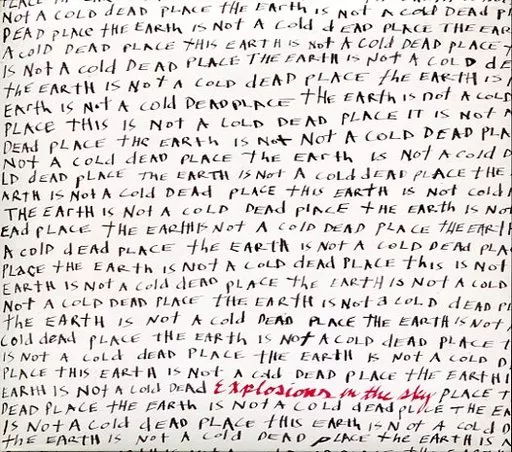 PLACE THE EARTH IS NOT A COLD DEAD PLACE
NOT A COLD DEAD PLACE THE EARTH IS NOT A COLD DEAD PL
DEAD PLACE THE EARTH IS NOT A COLD DEAD PLACE THE EAR
A COLD DEAD PLACE THIS EARTH IS NOT A COLD DEAD PLACE T
IS NOT A COLD DEAD PLACE THE EARTH IS NOT A COLD DE
THE EARTH IS NOT A COLD DEAD PLACE THE EARTH IS N
EARTH IS NOT A COLD DEAD PLACE THE EARTH IS NOT A COLD
PLACE THIS IS NOT A COLD DEAD PLACE IT IS NOT A
DEAD PLACE THE EARTH IS NOT NOT A COLD DEAD PLA
NOT A COLD DEAD PLACE THE EARTH IS NOT A COLD D
LD DEAD PLACE THE EARTH IS NOT A COLD DEAD PLACE THE
ARTH IS NOT A COLD DEAD PLACE THIS EARTH IS NOT COLD
THE EARTH IS NOT A COLD DEAD PLACE THE EARTH IS NO
EAD PLACE THE EARTH IS NOT A COLD DEAD PLACE THE EARTH
A COLD DEAD PLACE THE EARTH IS NOT A COLD DEAD PLA
PLACE THE EARTH IS NOT A COLD DEAD PLACE THIS IS NOT
EARTH IS NOT A COLD DEAD PLACE THE EARTH IS NOT A COLD
NOT A COLD DEAD PLACE THE EARTH IS NOT A COLD DEAD P
THE EARTH IS NOT A COLD DEAD PLACE THE EARTH IS NOT
COLD DEAD PLACE THE EARTH IS NOT A COLD DEAD PLACE T
IS NOT A COLD DEAD PLACE THE EARTH IS NOT A COLD D
PLACE THIS EARTH IS NOT A COLD DEAD PLACE THE EARTH I
EARTH IS NOT A COLD DEAD Explosions in the sky PLACE T
DEAD PLACE THE EARTH IS NOT A COLD DEAD PLACE THE EA
IS NOT A COLD DEAD PLACE THIS EARTH IS NOT A COLD D
THE EARTH IS NOT A COLD DEAD PLACE THE EARTH IS N